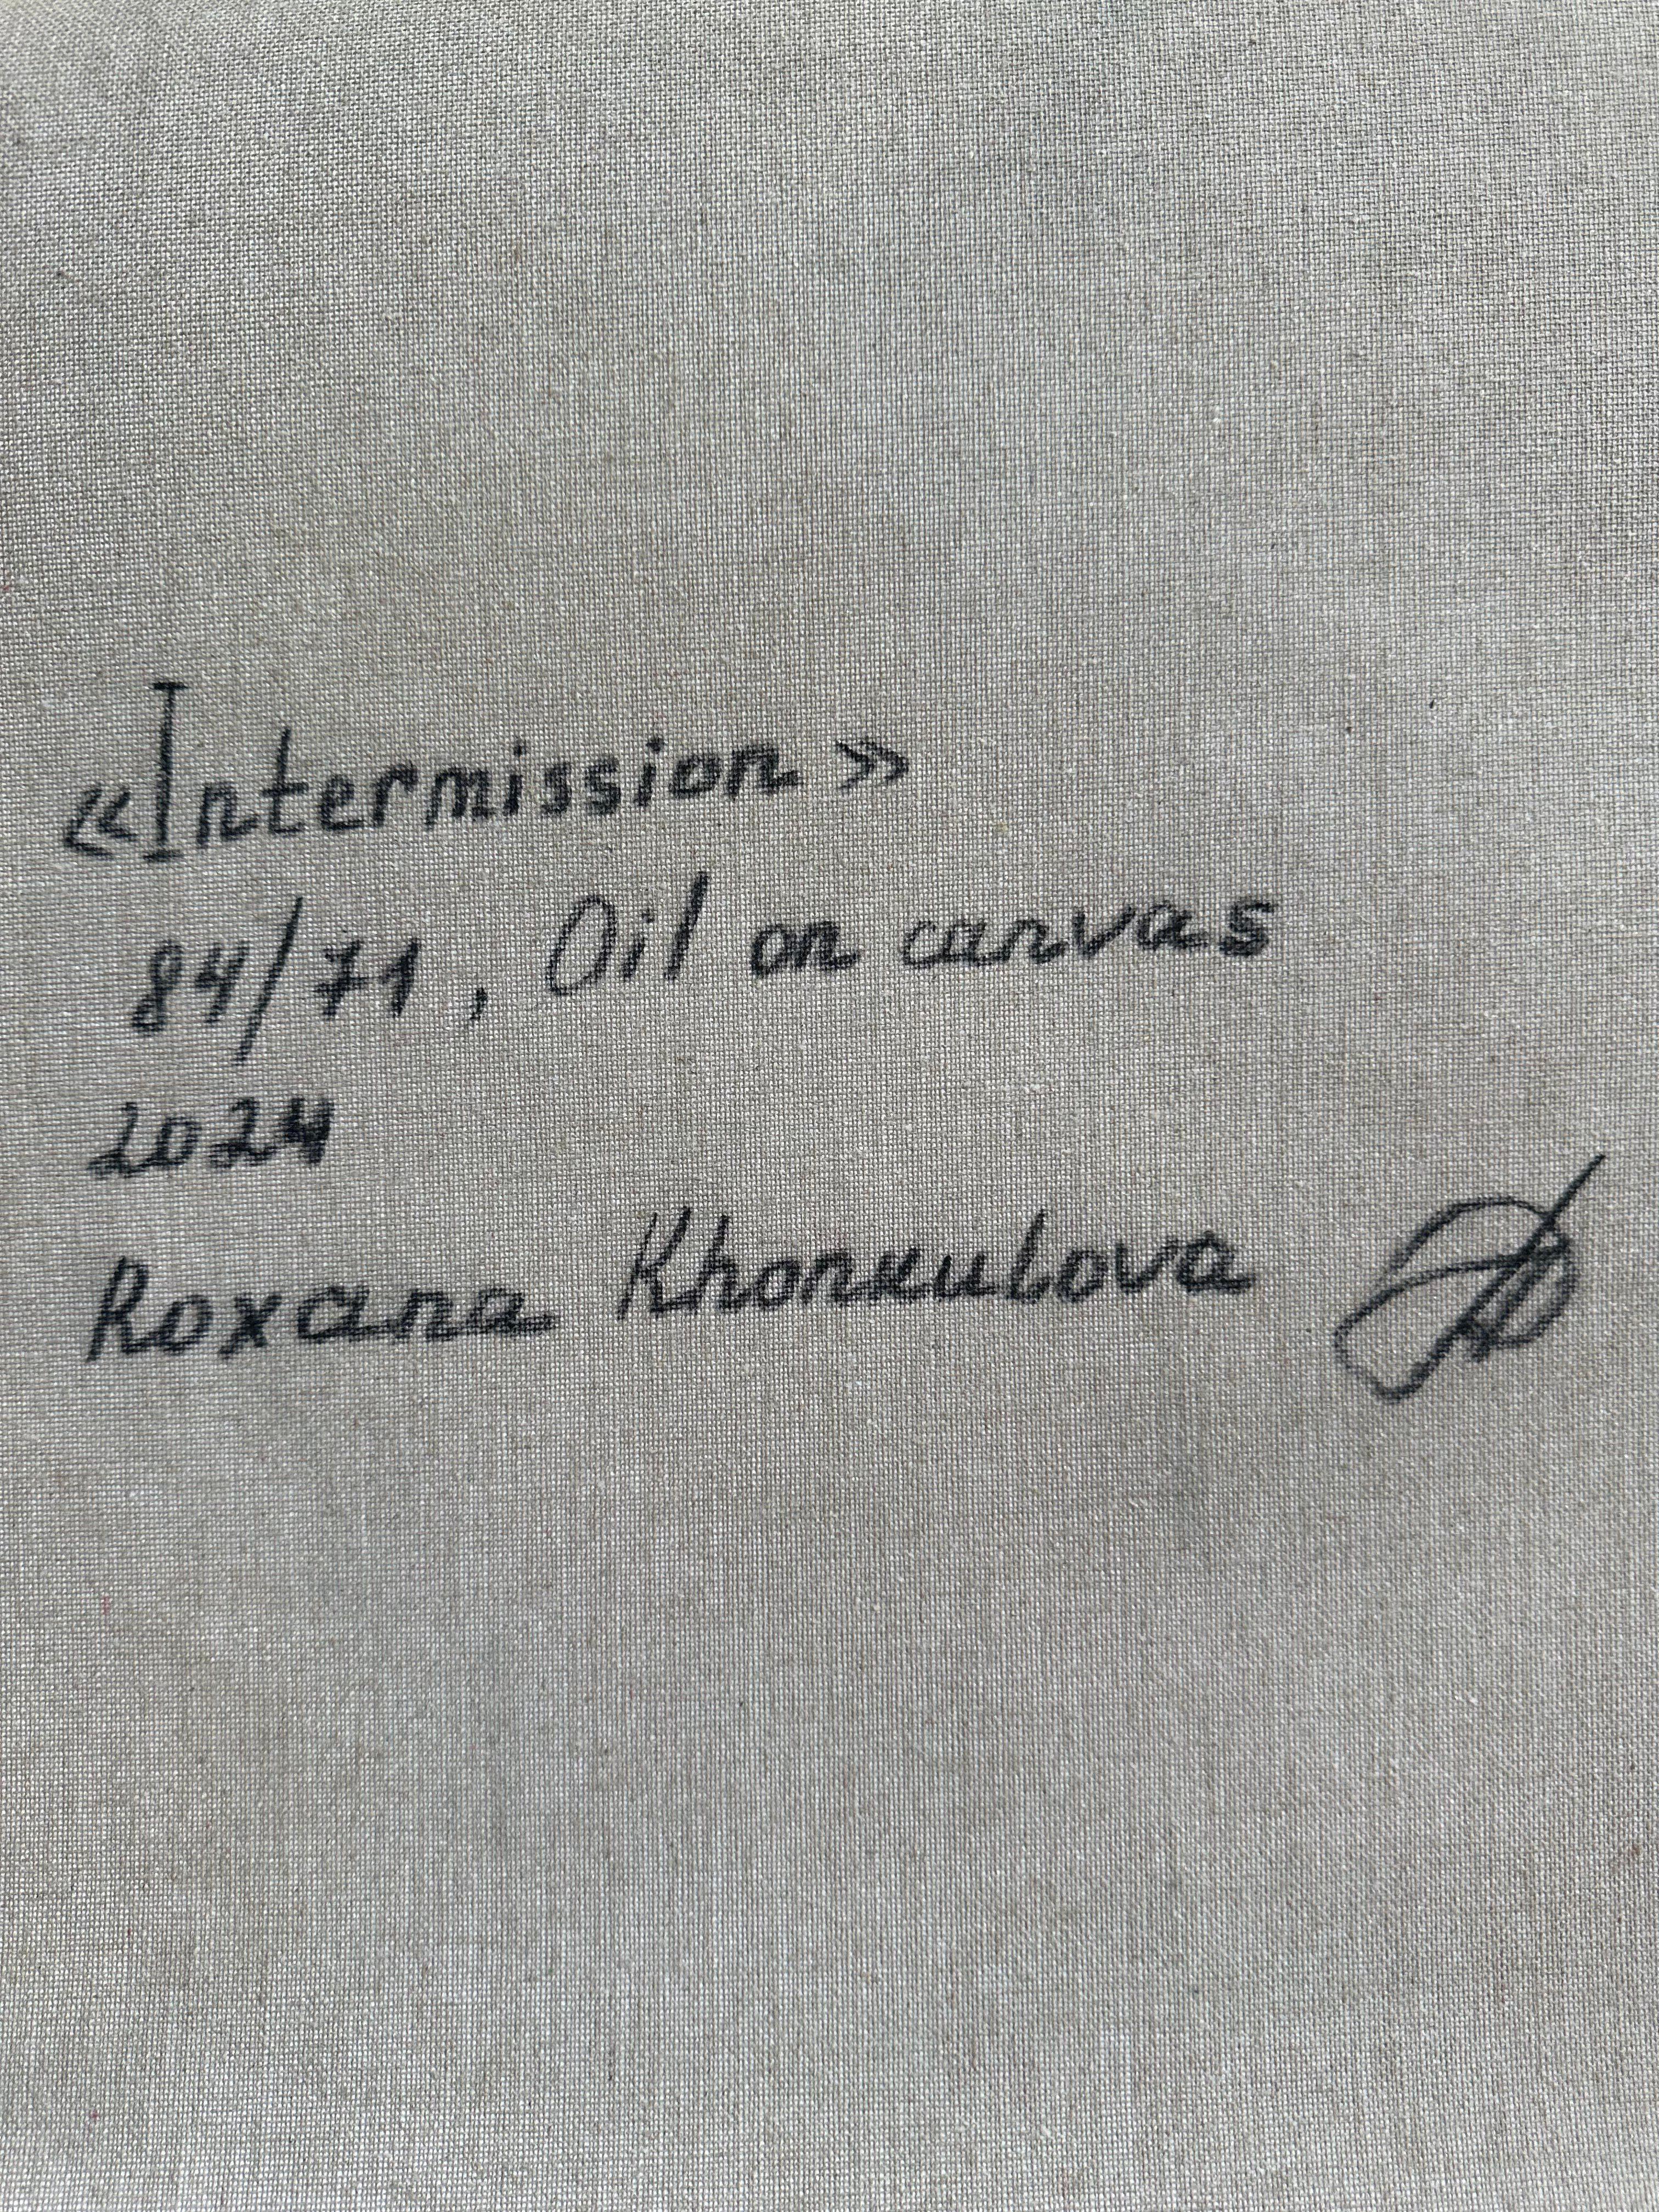 «Intermission»
84/71, Oil on canvas
2024
Roxana Khonkulova